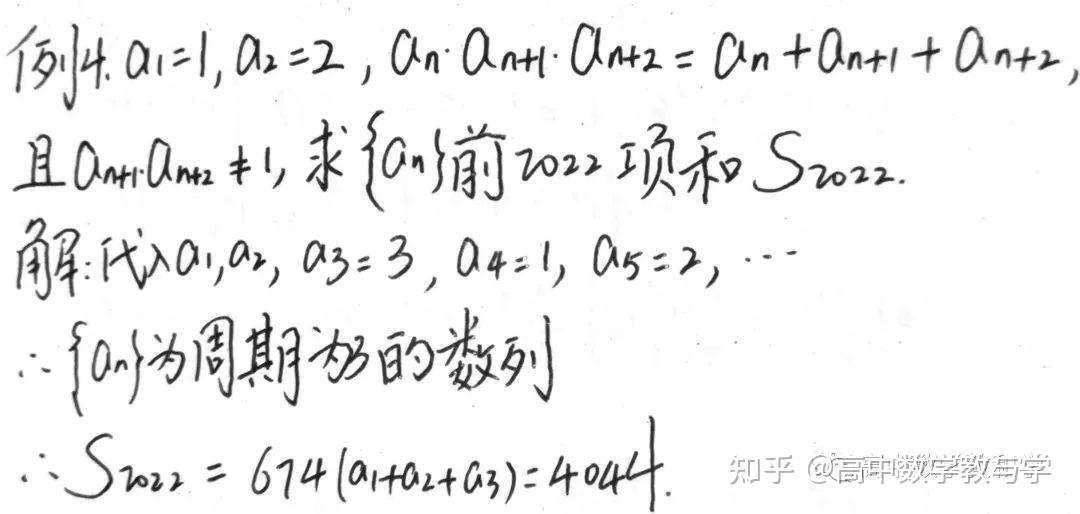 例4. a₁=1, a₂=2, aₙ·aₙ₊₁·aₙ₊₂=aₙ+aₙ₊₁+aₙ₊₂,
且aₙ₊₁·aₙ₊₂≠1, 求{aₙ}前2022项和S₂₀₂₂.
解:代入a₁,a₂, a₃=3, a₄=1, a₅=2, ···
∴{aₙ}为周期为3的数列
∴S₂₀₂₂=674(a₁+a₂+a₃)=4044.
知乎 @高中数学教与学